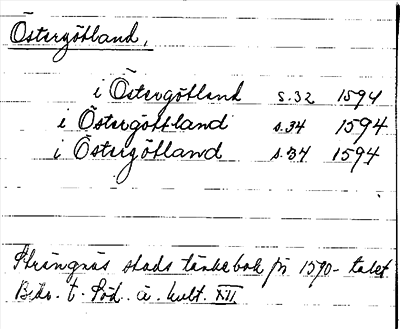 Östergötland,
i Östergötland s.32 1594
i Östergötland s.34 1594
i Östergötland s.34 1594
Strängnäs stads tänkebok fr. 1590-talet
Bidr. t. Söd. ä. kult. XII